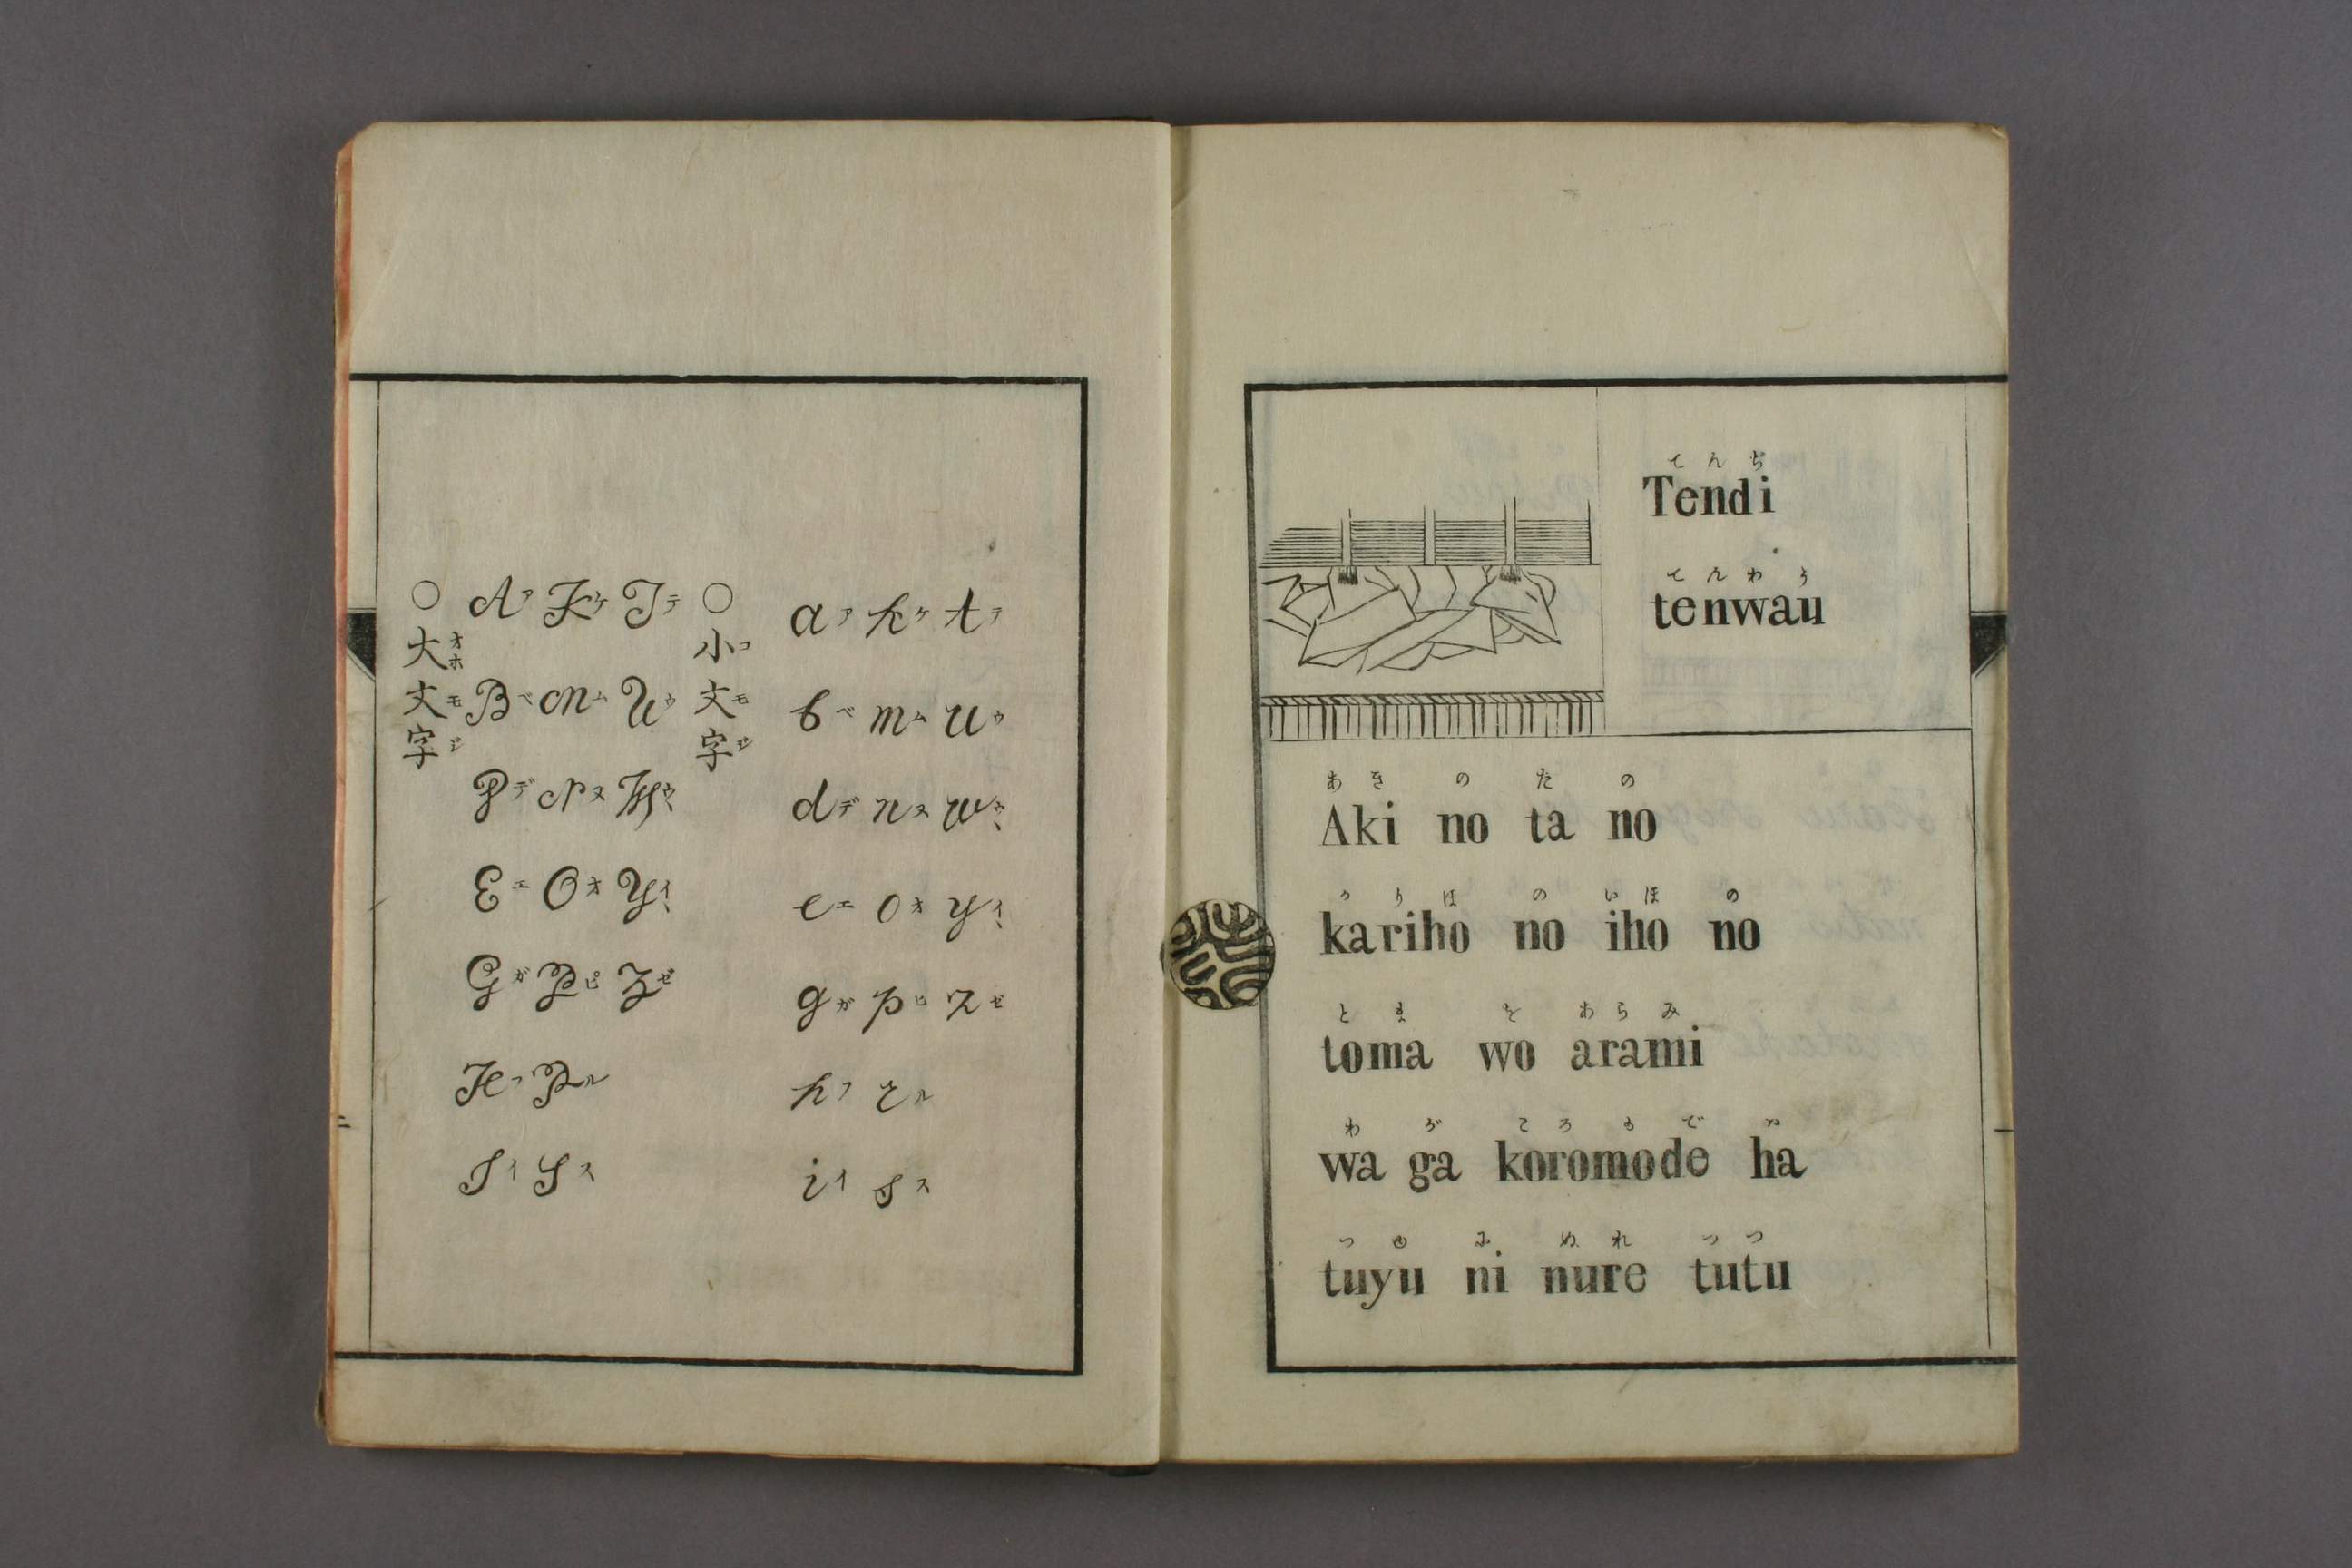 ○大文字
オホモジ
A ア K ケ T テ
B ベ M ム U ウ
D デ N ヌ W ウ
E エ O オ Y イ
G ガ P ピ Z ゼ
H フ R ル
I イ S ス
○小文字
コモジ
a ア k ケ t テ
b ベ m ム u ウ
d デ n ヌ w ウ
e エ o オ y イ
g ガ p ピ z ゼ
h フ r ル
i イ s ス
てんぢ
Tendi
てんわう
tenwau
あき の た の
Aki no ta no
かりほ の いほ の
kariho no iho no
とま を あらみ
toma wo arami
わ が ころもで ハ
wa ga koromode ha
つゆ に ぬれ つつ
tuyu ni nure tutu